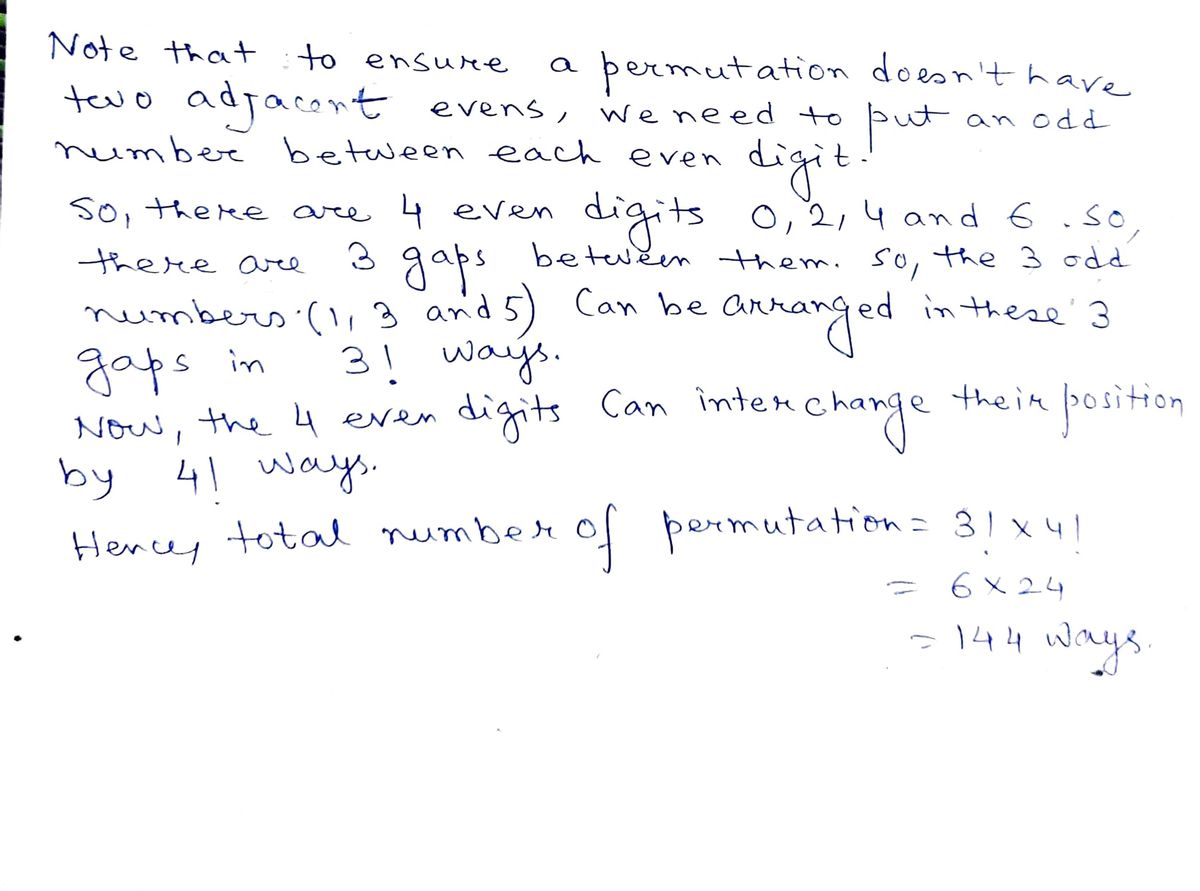 Note that to ensure a permutation doesn't have
two adjacent evens, we need to put an odd
number between each even digit.
So, there are 4 even digits 0, 2, 4 and 6. so,
there are 3 gaps between them. so, the 3 odd
numbers (1, 3 and 5) Can be arranged in these 3
gaps in 3! ways.
Now, the 4 even digits Can interchange their position
by 4! ways.
Hence, total number of permutation = 3! × 4!
= 6 × 24
= 144 ways.